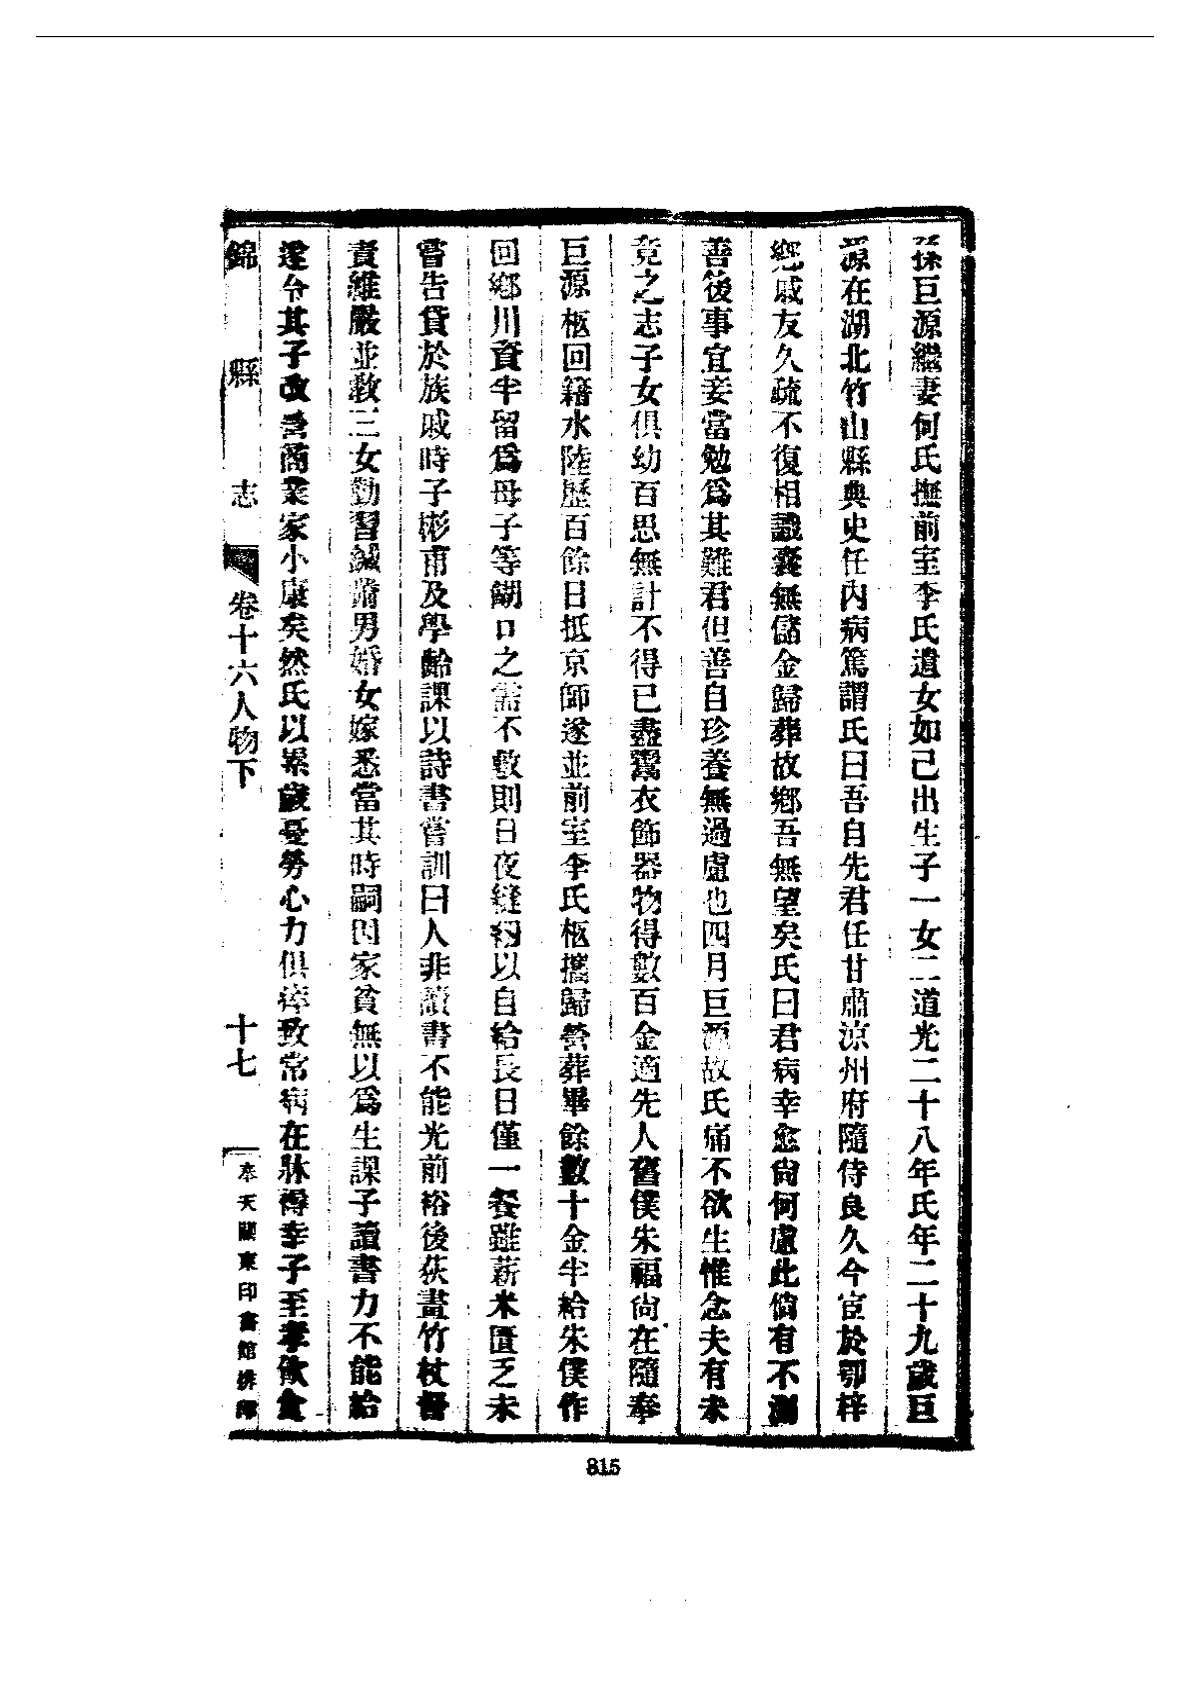 孫巨源繼妻何氏撫前室李氏遺女如己出生子一女二道光二十八年氏年二十九歲巨
源在湖北竹山縣典史任內病篤謂氏曰吾自先君任甘肅涼州府隨侍良久今宦於鄂梓
鄉戚友久疏不復相識囊無儲金歸葬故鄉吾無望矣氏曰君病幸愈尙何慮此倘有不測
善後事宜妾當勉爲其難君但善自珍養無過慮也四月巨源故氏痛不欲生惟念夫有未
竟之志子女俱幼百思無計不得已盡鬻衣飾器物得數百金適先人舊僕朱福尙在隨奉
巨源柩回籍水陸歷百餘日抵京師遂並前室李氏柩攜歸營葬畢餘數十金半給朱僕作
回鄉川資半留爲母子等餬口之需不敷則日夜縫紉以自給長日僅一餐雖薪米匱乏未
嘗告貸於族戚時子彬甫及學齡課以詩書嘗訓曰人非讀書不能光前裕後荻畫竹杖督
責維嚴並敎三女勤習鍼黹男婚女嫁悉當其時嗣因家貧無以爲生課子讀書力不能給
遂令其子改營商業家小康矣然氏以累歲憂勞心力俱瘁致常病在牀褥幸子至孝飲食
錦縣志 卷十六人物下 十七 奉天關東印書館排印
815